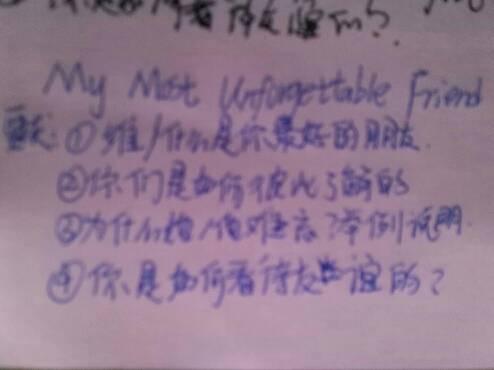 是如何看待友谊的?
My Most Unforgettable Friend
要求: ①谁/什么是你最好的朋友.
②你们是如何彼此了解的
③为什么她/他难忘?举例说明.
④你是如何看待友谊的?